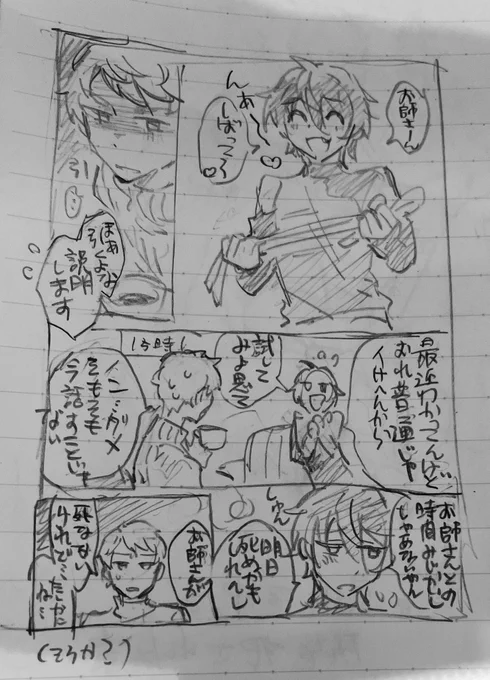 お師さん
んあ〜
しばって〜
引
まあ
引くよな
説明
します
最近わかってんけど
おれ昔で
イけへんから
試して
みよ思て
15時
イン…ダメ
そもそも
今話すことじゃ
ない
お師さんとの
時間みじかいし
しゅん
明日
死ぬかも
しれへんし
お師さんが
死なない
けれど…
たしかに
ね…
(そうか?)